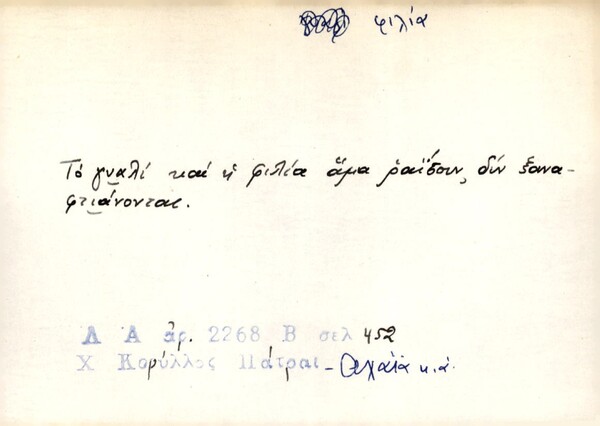 φιλία
Τό γυαλί καί ἡ φιλία ἅμα ραΐσουν, δέν ξανα-
φτιάνονται.
Λ Α ἀρ. 2268 Β σελ 452
Χ Κορύλλος Πάτραι - Ἀχαΐα κ.ἀ.